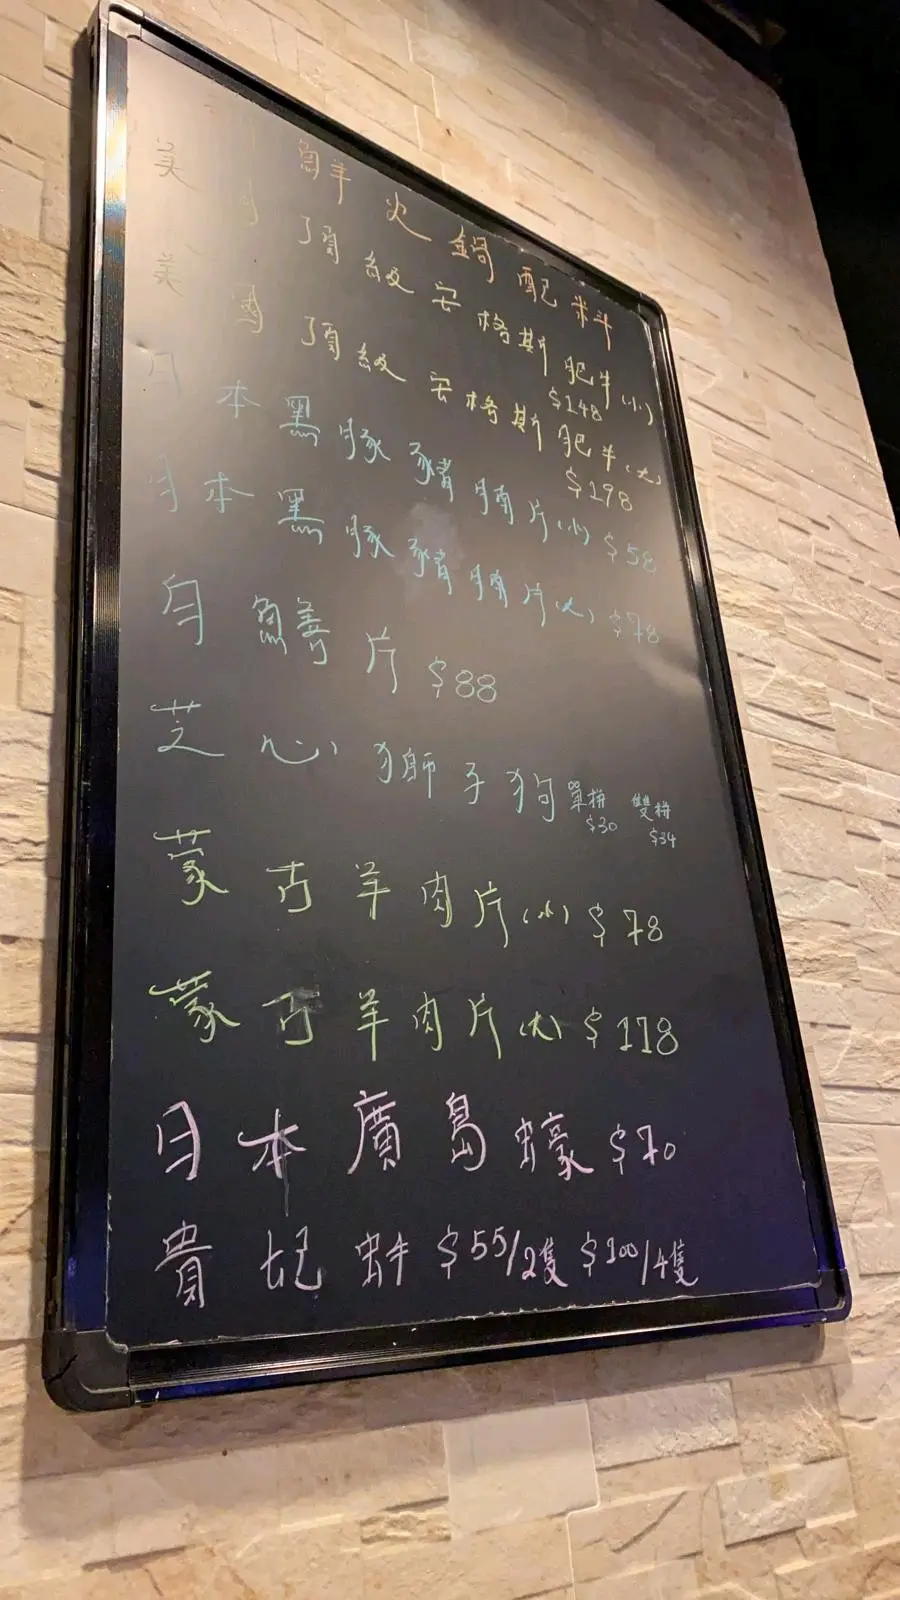 鮮火鍋配料
美國頂級安格斯肥牛(小) $148
美國頂級安格斯肥牛(大) $198
日本黑豚豬腩片(小) $58
日本黑豚豬腩片(大) $78
白鱔片 $88
芝心獅子狗 單拼 $30 雙拼 $34
蒙古羊肉片(小) $78
蒙古羊肉片(大) $118
日本廣島蠔 $70
貴妃蚌 $55/2隻 $100/4隻